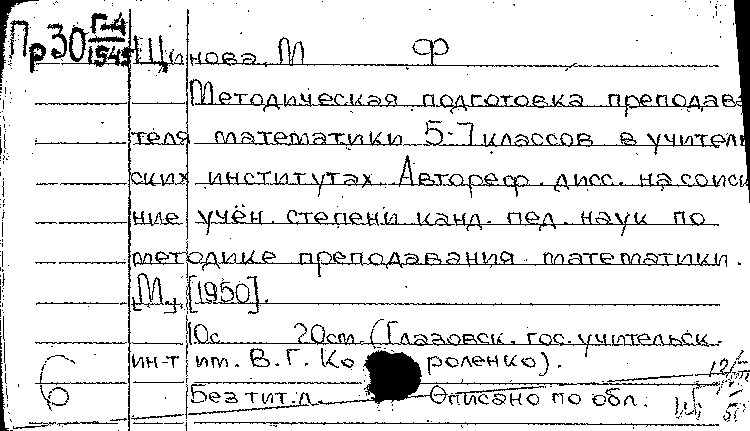 Пр30 Г-4/1545
Щинова, М Ф
Методическая подготовка препода­ва
теля математики 5-7 классов в учитель
ских институтах. Автореф. дисс. на соиск
ние учён. степени канд. пед. наук по
методике преподавания математики.
М., [1950].
10с 20см. (Глазовск. гос. учительск.
ин-т им. В. Г. Короленко).
Без тит. л. Описано по обл.
6